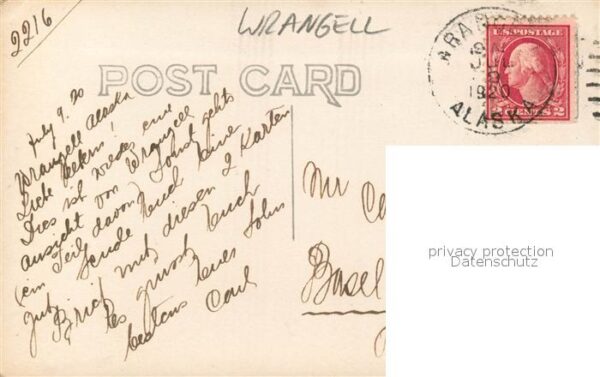 2216
WRANGELL
POST CARD
WRANGELL
JUL
1920
ALASKA
U.S. POSTAGE
2 CENTS 2
July 9. 20
Wrangell Alaska
Liebe Eltern!
Dies ist wieder eine
ansicht von Wrangell
(ein Teil davon) Sonst gehts
gut. Sende Euch eine
Brief mit diesen 2 Karten
Es grüsst Euch
bestens Euer Sohn
Carl
Mr C
Basel
privacy protection
Datenschutz